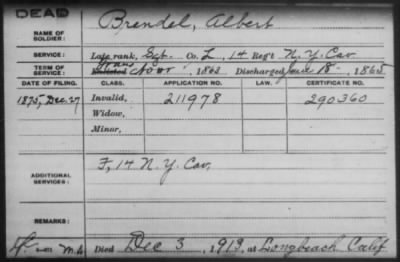 DEAD
NAME OF SOLDIER: Brendel, Albert
SERVICE: Late rank, Sgt. Co. L, 14 Reg't N.Y. Cav.
TERM OF SERVICE: Enlisted Nov, 1862 Discharged June 18, 1865
DATE OF FILING. CLASS. APPLICATION NO. LAW. CERTIFICATE NO.
1875, Dec. 27 Invalid, 211978 290360
Widow,
Minor,
ADDITIONAL SERVICES: F, 14 N.Y. Cav.
REMARKS:
Died Dec 3, 1913, at Longbeach Calif